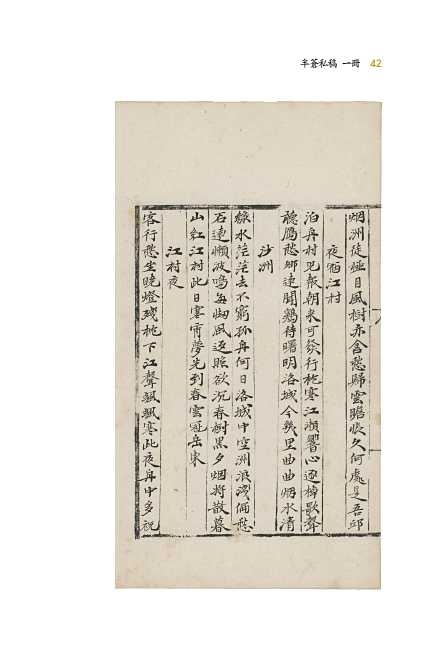 半蒼私稿 一冊 42
烟洲徒極目風樹亦含愁歸雲瞻悵久何處是吾邱
夜宿江村
泊舟村兒報朝來可發行桅寒江瀬響心逐棹歌聲
聽鴈愁鄉遠聞鷄待曙明洛城今幾里曲曲烟水清
沙洲
綠水茫茫去不窮孤舟何日洛城中空洲浪淺俩愁
石遠懶波鳴每怮風返照欲沉春樹黑夕烟將散暮
山紅江村此日寒宵夢先到春雲冠岳東
江村夜
客行愁坐曉燈殘桅下江聲颯颯寒此夜舟中多祝